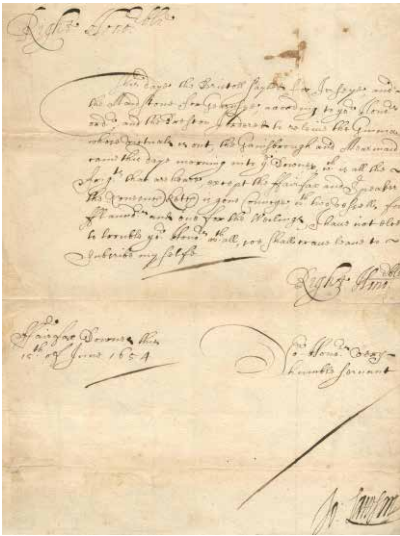 Right Hono:ble
This daye the Bristoll sayled for Jerseye and
the Maidstone for according to yor Honors
order and the to releive the
whose victuals is out, the Gainsborough and Mermaid
came this daye morning into ye Downes, wch is all the
that wee have except the Fairfax and Speaker
the Ketch is gone wth two vessells for
and one for the I have not else
to trouble yor Honors withall, soe shall crave leave to
subscribe my selfe
Right Honoble
Fairfax Downes this
15th of June 1654
Yor Honors very
humble servant
Jo: Lawson